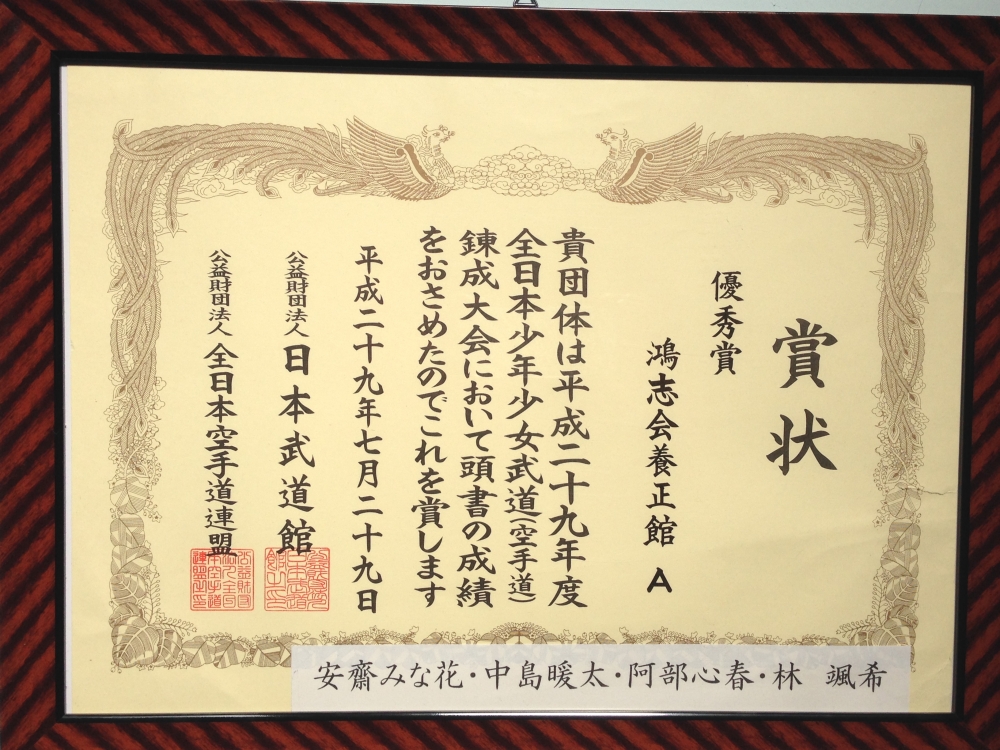 賞状
優秀賞
鴻志会養正館 A
貴団体は平成二十九年度
全日本少年少女武道(空手道)
錬成大会において頭書の成績
をおさめたのでこれを賞します
平成二十九年七月二十九日
公益財団法人 日本武道館
公益財団法人 全日本空手道連盟
安齋みな花・中島暖太・阿部心春・林 颯希